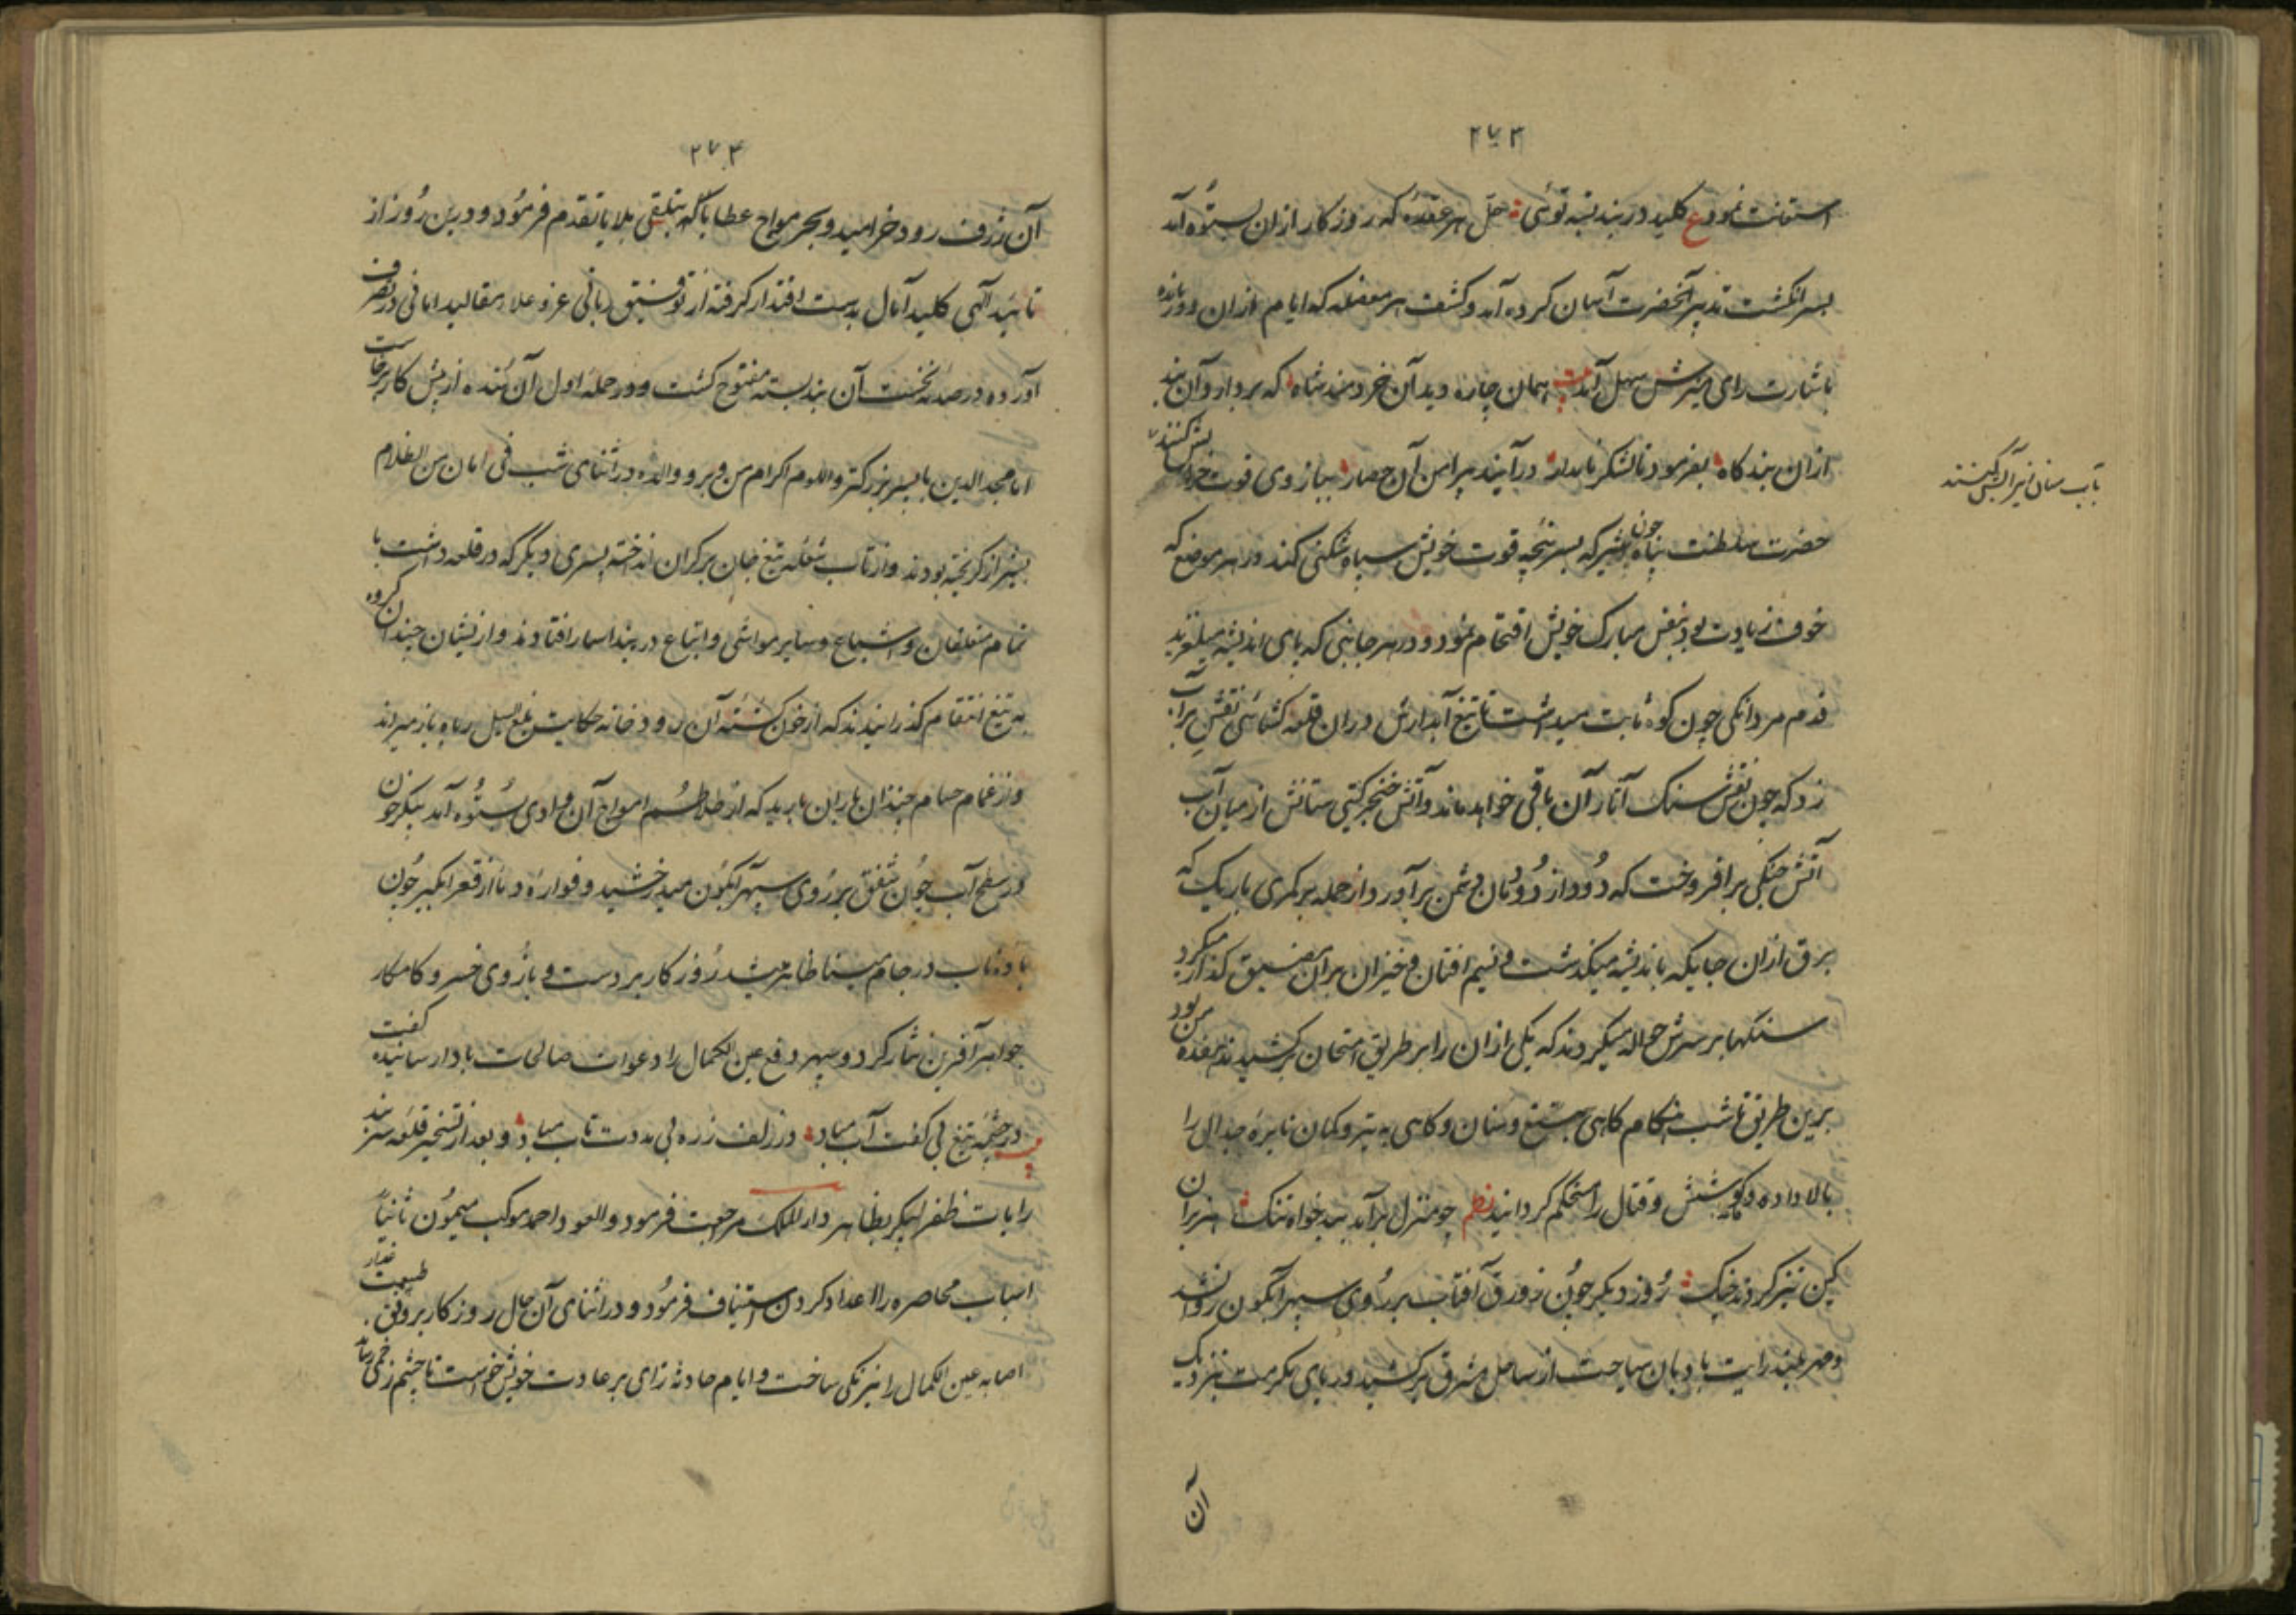 ۲۷۳
استعانت نمود ع کلید در بند بسته توئی حل هر عقده که روزکار ازان بستوه آمد
بسر انکشت تدبیر آنحضرت آسان کرده آمد و کشف هر معضله که ایام ازان دور مانده
باشارت رای منیرش سهل آمد بیت همان چاره دید آن خردمند شاه که بردارد آن بند
ازان بندکاه بفرمود تا لشکر نامدار در آیند پیرامن آن حصار ببازوی قوت
بآب سنان نیز آتش کنند
حضرت سلطنت پناه چون شیر که بسر پنجه قوت خویش سپاه شکنی کند در هر موضع که
خوف زیادت بود بنفس مبارک خویش اقتحام نمود و در هر جانبی که پای اندیشه میلغزید
قدم مردانکی چون کوه ثابت میداشت تا تیغ آبدارش دران قلعه کشائی نقش بر آب
زد که چون نقش سنک آثار آن باقی خواهد ماند و آتش خنجر کیتی ستانش از میان آب
آتش جنکی بر افروخت که دود از دودمان دشمن برآورد و از جمله بر کمری باریک که
برق ازان جایکه باندیشه میکذشت و نسیم افتان و خیزان بران مضیق کذار میکرد
سنکها بر سرش حواله میکردند که یکی ازان را بر طریق امتحان برکشیدند هفده من بود
برین طریق تا شب هنکام کاهی بتیغ و سنان و کاهی به تیر و کمان نایره جدال را
بالا داده و کوشش و قتال را مستحکم کردانید نظم چو منزل برآمد بدخواه تنک هزبران
کین تیز کردند جنک روز دیکر چون زورق آفتاب بر روی سپهر آبکون روان شد
و مهر بلند رایت بادبان سیاحت از ساحل مشرق برکشید دریای مکرمت بنزدیک
آن
۲۷۴
آن ژرف رود خرامید و بحر مواج عطایا که بتلقی بلایا تقدم فرمود و درین روز از
تائید الهی کلید آمال بدست اقتدار کرفته از توفیق ربانی عز و علا مقالید امانی در تصرف
آورده در صدمه نخست آن بند بسته مفتوح کشت و در حمله اول آن کنده از پیش کار برخاست
اما مجد الدین با پسر بزرکتر و اللوم اکرام من و والده در اثنای شب فی امان من الظلام
بشیراز کریخته بودند و از تاب شعله تیغ جان بر کران انداخته پسری دیکر که در قلعه داشت با
تمام متعلقان و اشیاع و سایر مواشی و اتباع در بند اسار افتادند و از ایشان چندان کروه
به تیغ انتقام کذرانیدند که از خون کشته آن رودخانه حکایت بلغ السیل رباه باز میراند
و از غمام حسام چندان باران بارید که از تلاطم امواج آن وادی بستوه آمد پیکر خون
در سطح آب چون شفق بر روی سپهر آبکون میدرخشید و فواره دما از قعر آبکیر چون
باده ناب در جام مینا ظاهر میشد روزکار بر دست و بازوی خسرو کامکار
جواهر آفرین نثار کرد و سپهر دفع عین الکمال را دعوات صالحات بادا رسانیده کفت
بیت در چشمه تیغ بی کفت آب مباد در زلف زره بی مددت تاب مباد و بعد از تسخیر قلعه سربند
رایات ظفر پیکر بظاهر دار الملک مرجعت فرمود و العود احمد موکب میمون ثانیاً
اسباب محاصره را اعداد کردن استیناف فرمود و در اثنای آن حال روزکار بر وفق طبیعت غدار
اصابه عین الکمال را نیرنکی ساخت و ایام حادثه زای بر عادت خویش خواست تا چشم زخمی رساند